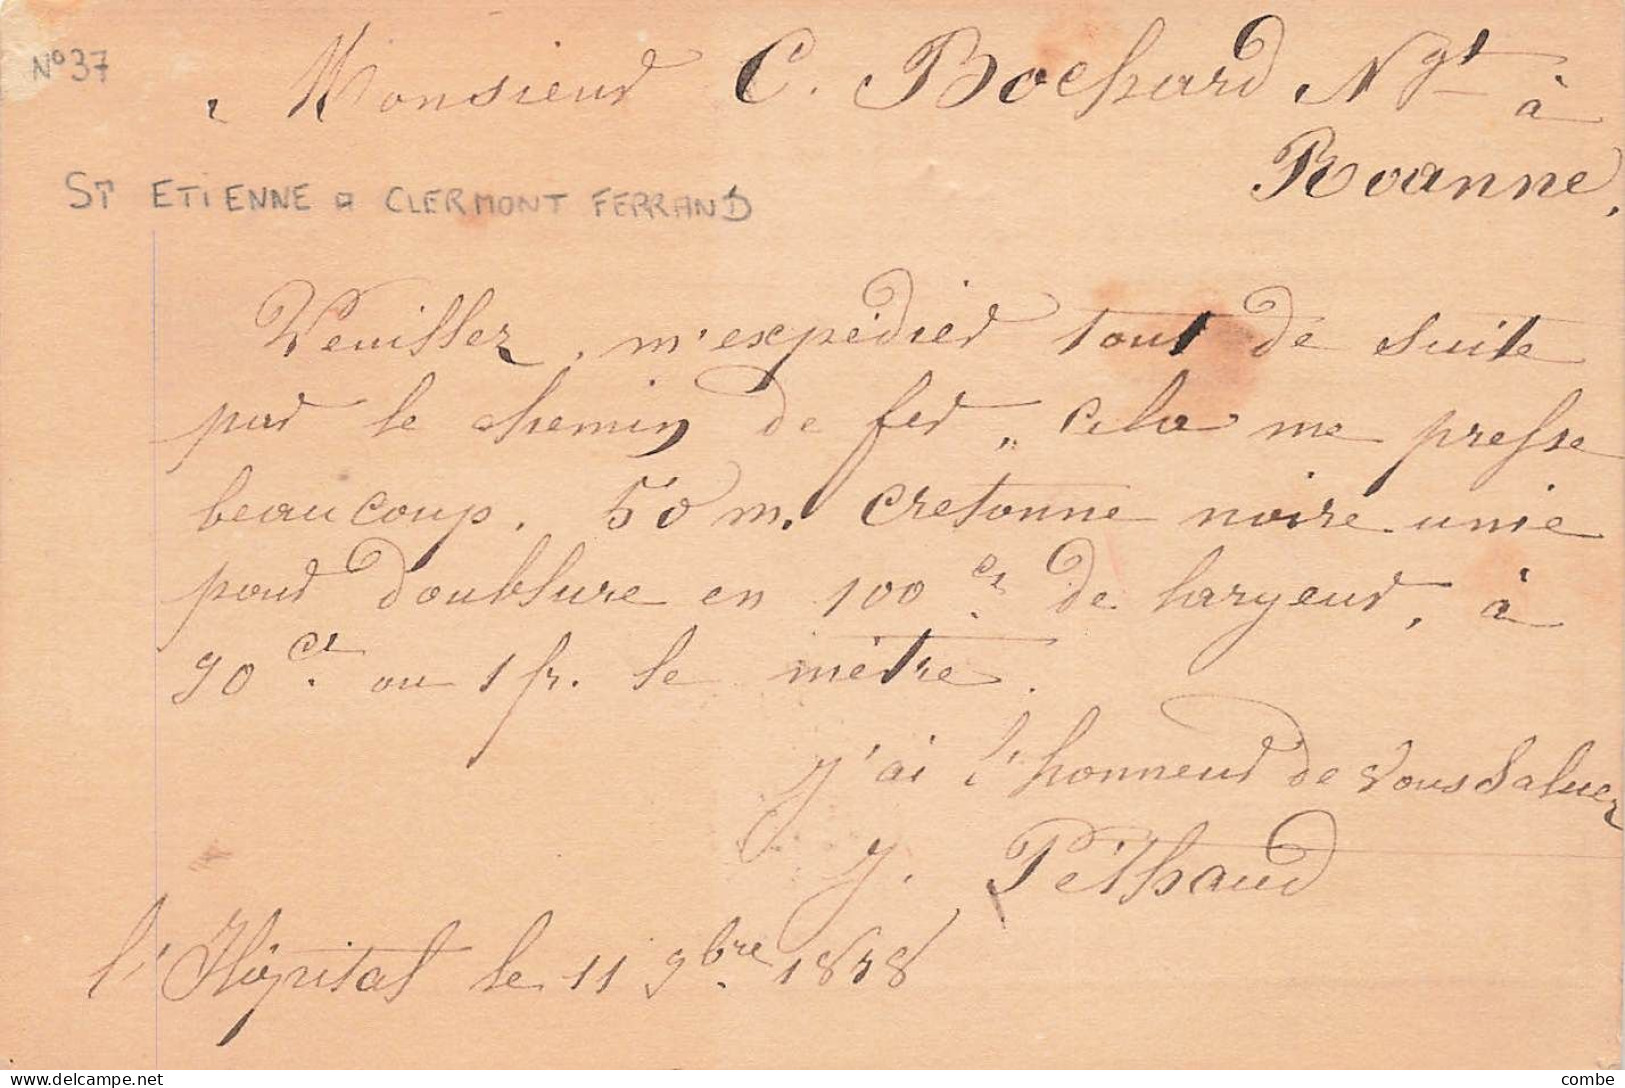 N° 37
Monsieur C. Bochard Ngt à
Roanne,
ST ETIENNE A CLERMONT FERRAND
Veuillez, m'expédier tout de suite
par le chemin de fer „ cela me presse
beaucoup. 50 m. cretonne noire unie
pour doublure en 100 c. de largeur, à
90 c. ou 1 fr. le mètre.
J'ai l'honneur de vous saluer
J. Péthaud
l'Hôpital le 11 9bre 1878
combe